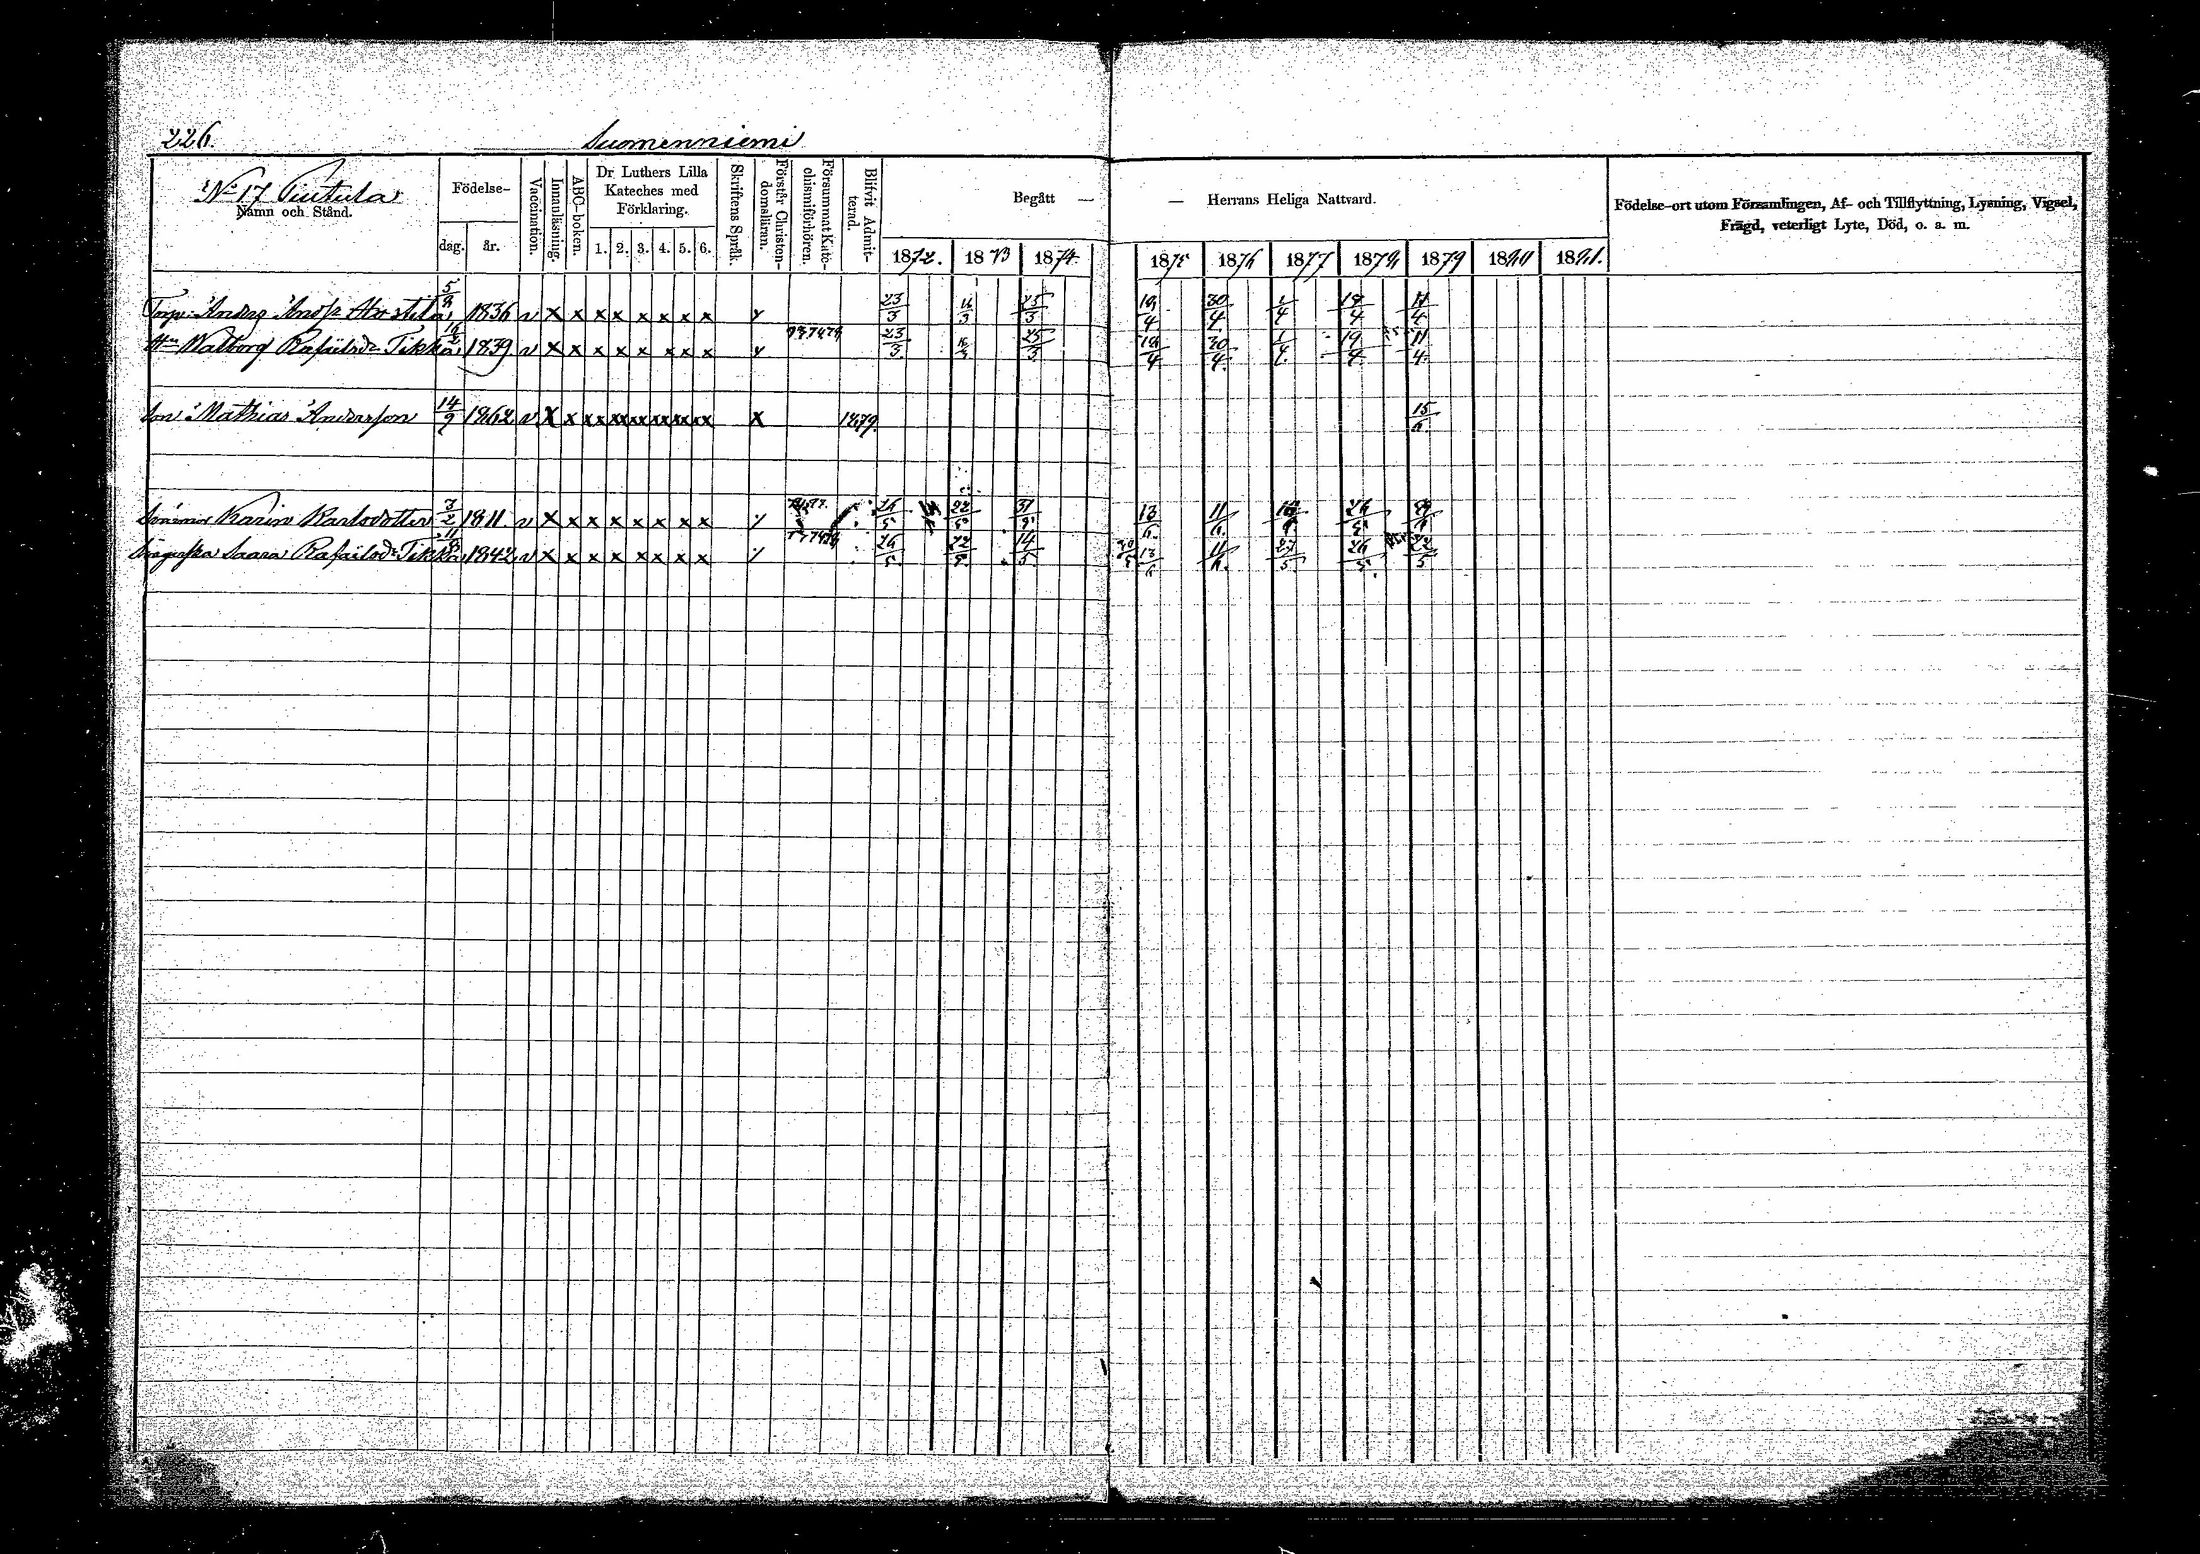 226. Suomenniemi
№ 17
Namn och Stånd.
Födelse-
dag. år.
Vaccination.
Innanläsning.
ABC-boken.
Dr Luthers Lilla
Kateches med
Förklaring.
1. 2. 3. 4. 5. 6.
Skriftens Språk.
Förstår Christen-
domsläran.
Försummat Kate-
chismiförhören.
Blifvit Admit-
terad.
Begått —
1872. 1873 1874
— Herrans Heliga Nattvard.
1875 1876 1877 1878 1879 1880 1881.
Födelse-ort utom Församlingen, Af- och Tillflyttning, Lysning, Vigsel,
Frägd, veterligt Lyte, Död, o. a. m.
Anders 1836 v x x x x x x x x 23/3 25/3 30/4 1/4 11/4
Hu Walborg Rafaelsdr Tikka 1839 v x x x x x x x x 23/3 25/3 30/4 1/4 19/4 11/4
Son Mathias Andersson 14/9 1862 v X x xx xx xx xx xx xx x 1879. 15/6
Karin Karlsdotter 3/2 1811 v x x x x x x x x 26/5 22/5 31/5 13/6 11/6 26/5
Saara Rafaelsdr Tikka 1842 v x x x x x x x x 26/5 22/5 14/5 30/5 13/6 11/6 27/5 26/5 22/5